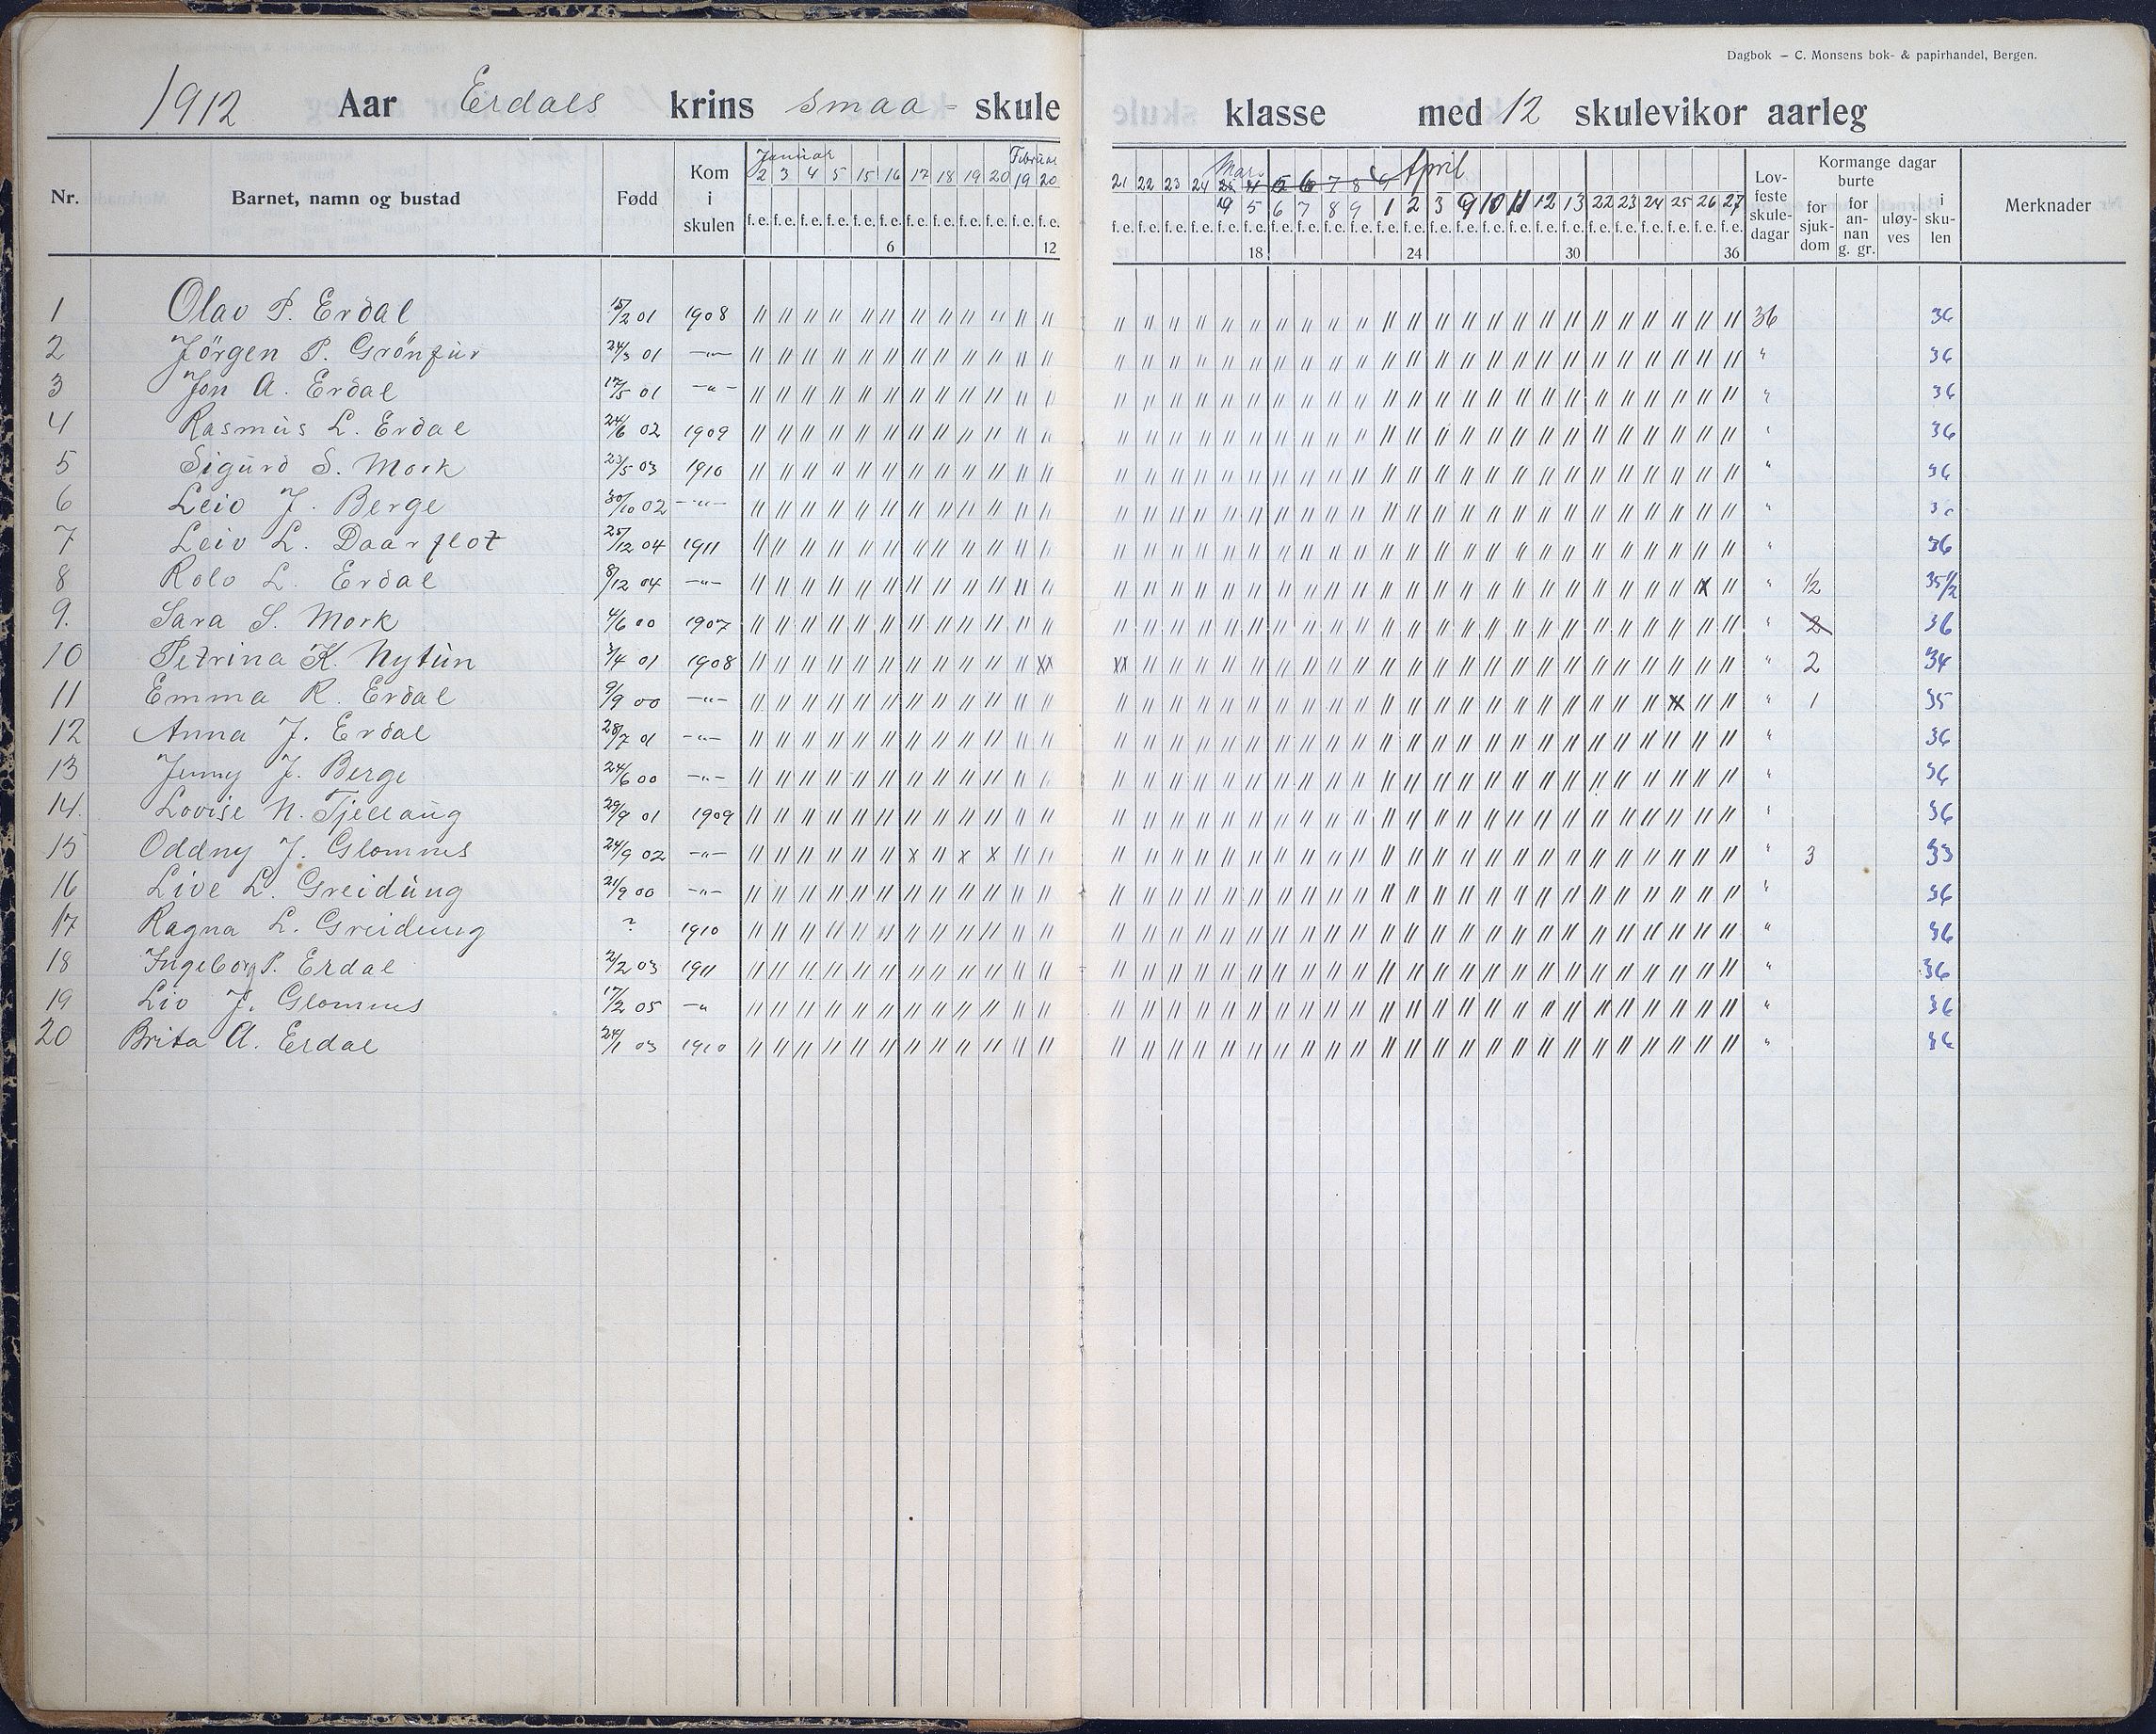 Dagbok – C. Monsens bok- & papirhandel, Bergen.
1912 Aar Erdals krins smaa- skule klasse med 12 skulevikor aarleg
Nr. Barnet, namn og bustad Fødd Kom i skulen Lovfeste skuledagar Kormange dagar burte for sjukdom for annan g. gr. uløyves i skulen Merknader
Januar Februar Mars April
2 3 4 5 15 16 17 18 19 20 19 20 21 22 23 24
19 5 6 7 8 9 1 2 3 9 10 11 12 13 22 23 24 25 26 27
f. e. f. e. f. e. f. e. f. e. f. e. f. e. f. e. f. e. f. e. f. e. f. e. f. e. f. e. f. e. f. e. f. e. f. e. f. e. f. e. f. e. f. e. f. e. f. e. f. e. f. e. f. e. f. e. f. e. f. e. f. e. f. e. f. e. f. e. f. e. f. e.
6 12 18 24 30 36
1 Olav P. Erdal 15/2 01 1908 36 36
2 Jörgen P. Grönfur 24/3 01 -"- " 36
3 Jon A. Erdal 17/5 01 -"- " 36
4 Rasmus L. Erdal 24/6 02 1909 " 36
5 Sigurd S. Mork 23/5 03 1910 " 36
6 Leiv J. Berge 30/10 02 -"- " 36
7 Leiv L. Daarflot 25/12 04 1911 " 36
8 Rolv L. Erdal 8/12 04 -"- " 1/2 35 1/2
9. Sara S. Mork 4/6 00 1907 " 2 36
10 Petrina K. Nytun 3/4 01 1908 " 2 34
11 Emma R. Erdal 9/9 00 -"- " 1 35
12 Anna J. Erdal 28/7 01 -"- " 36
13 Jenny J. Berge 24/6 00 -"- " 36
14. Lovise N. Tjellaug 29/9 01 1909 " 36
15 Oddny J. Glomnes 24/9 02 -"- " 3 33
16 Live L. Greidung 21/9 00 -"- " 36
17 Ragna L. Greidung ? 1910 " 36
18 Ingeborg P. Erdal 2/2 03 1911 " 36
19 Liv J. Glomnes 17/2 05 -" " 36
20 Brita A. Erdal 24/1 03 1910 " 36